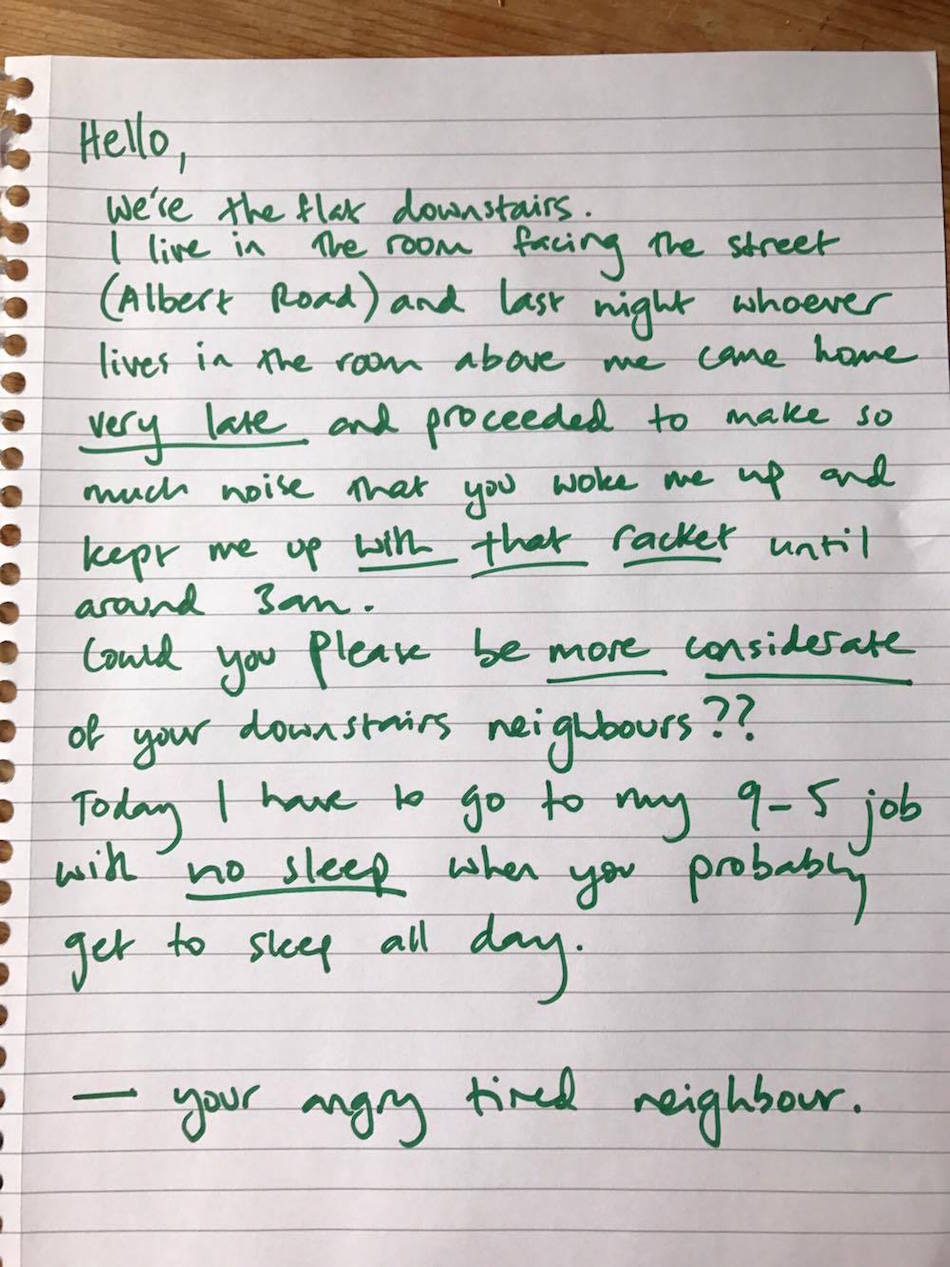 Hello,
We're the flat downstairs.
I live in the room facing the street
(Albert Road) and last night whoever
lives in the room above me came home
very late and proceeded to make so
much noise that you woke me up and
kept me up with that racket until
around 3am.
Could you please be more considerate
of your downstairs neighbours??
Today I have to go to my 9-5 job
with no sleep when you probably
get to sleep all day.
— your angry tired neighbour.